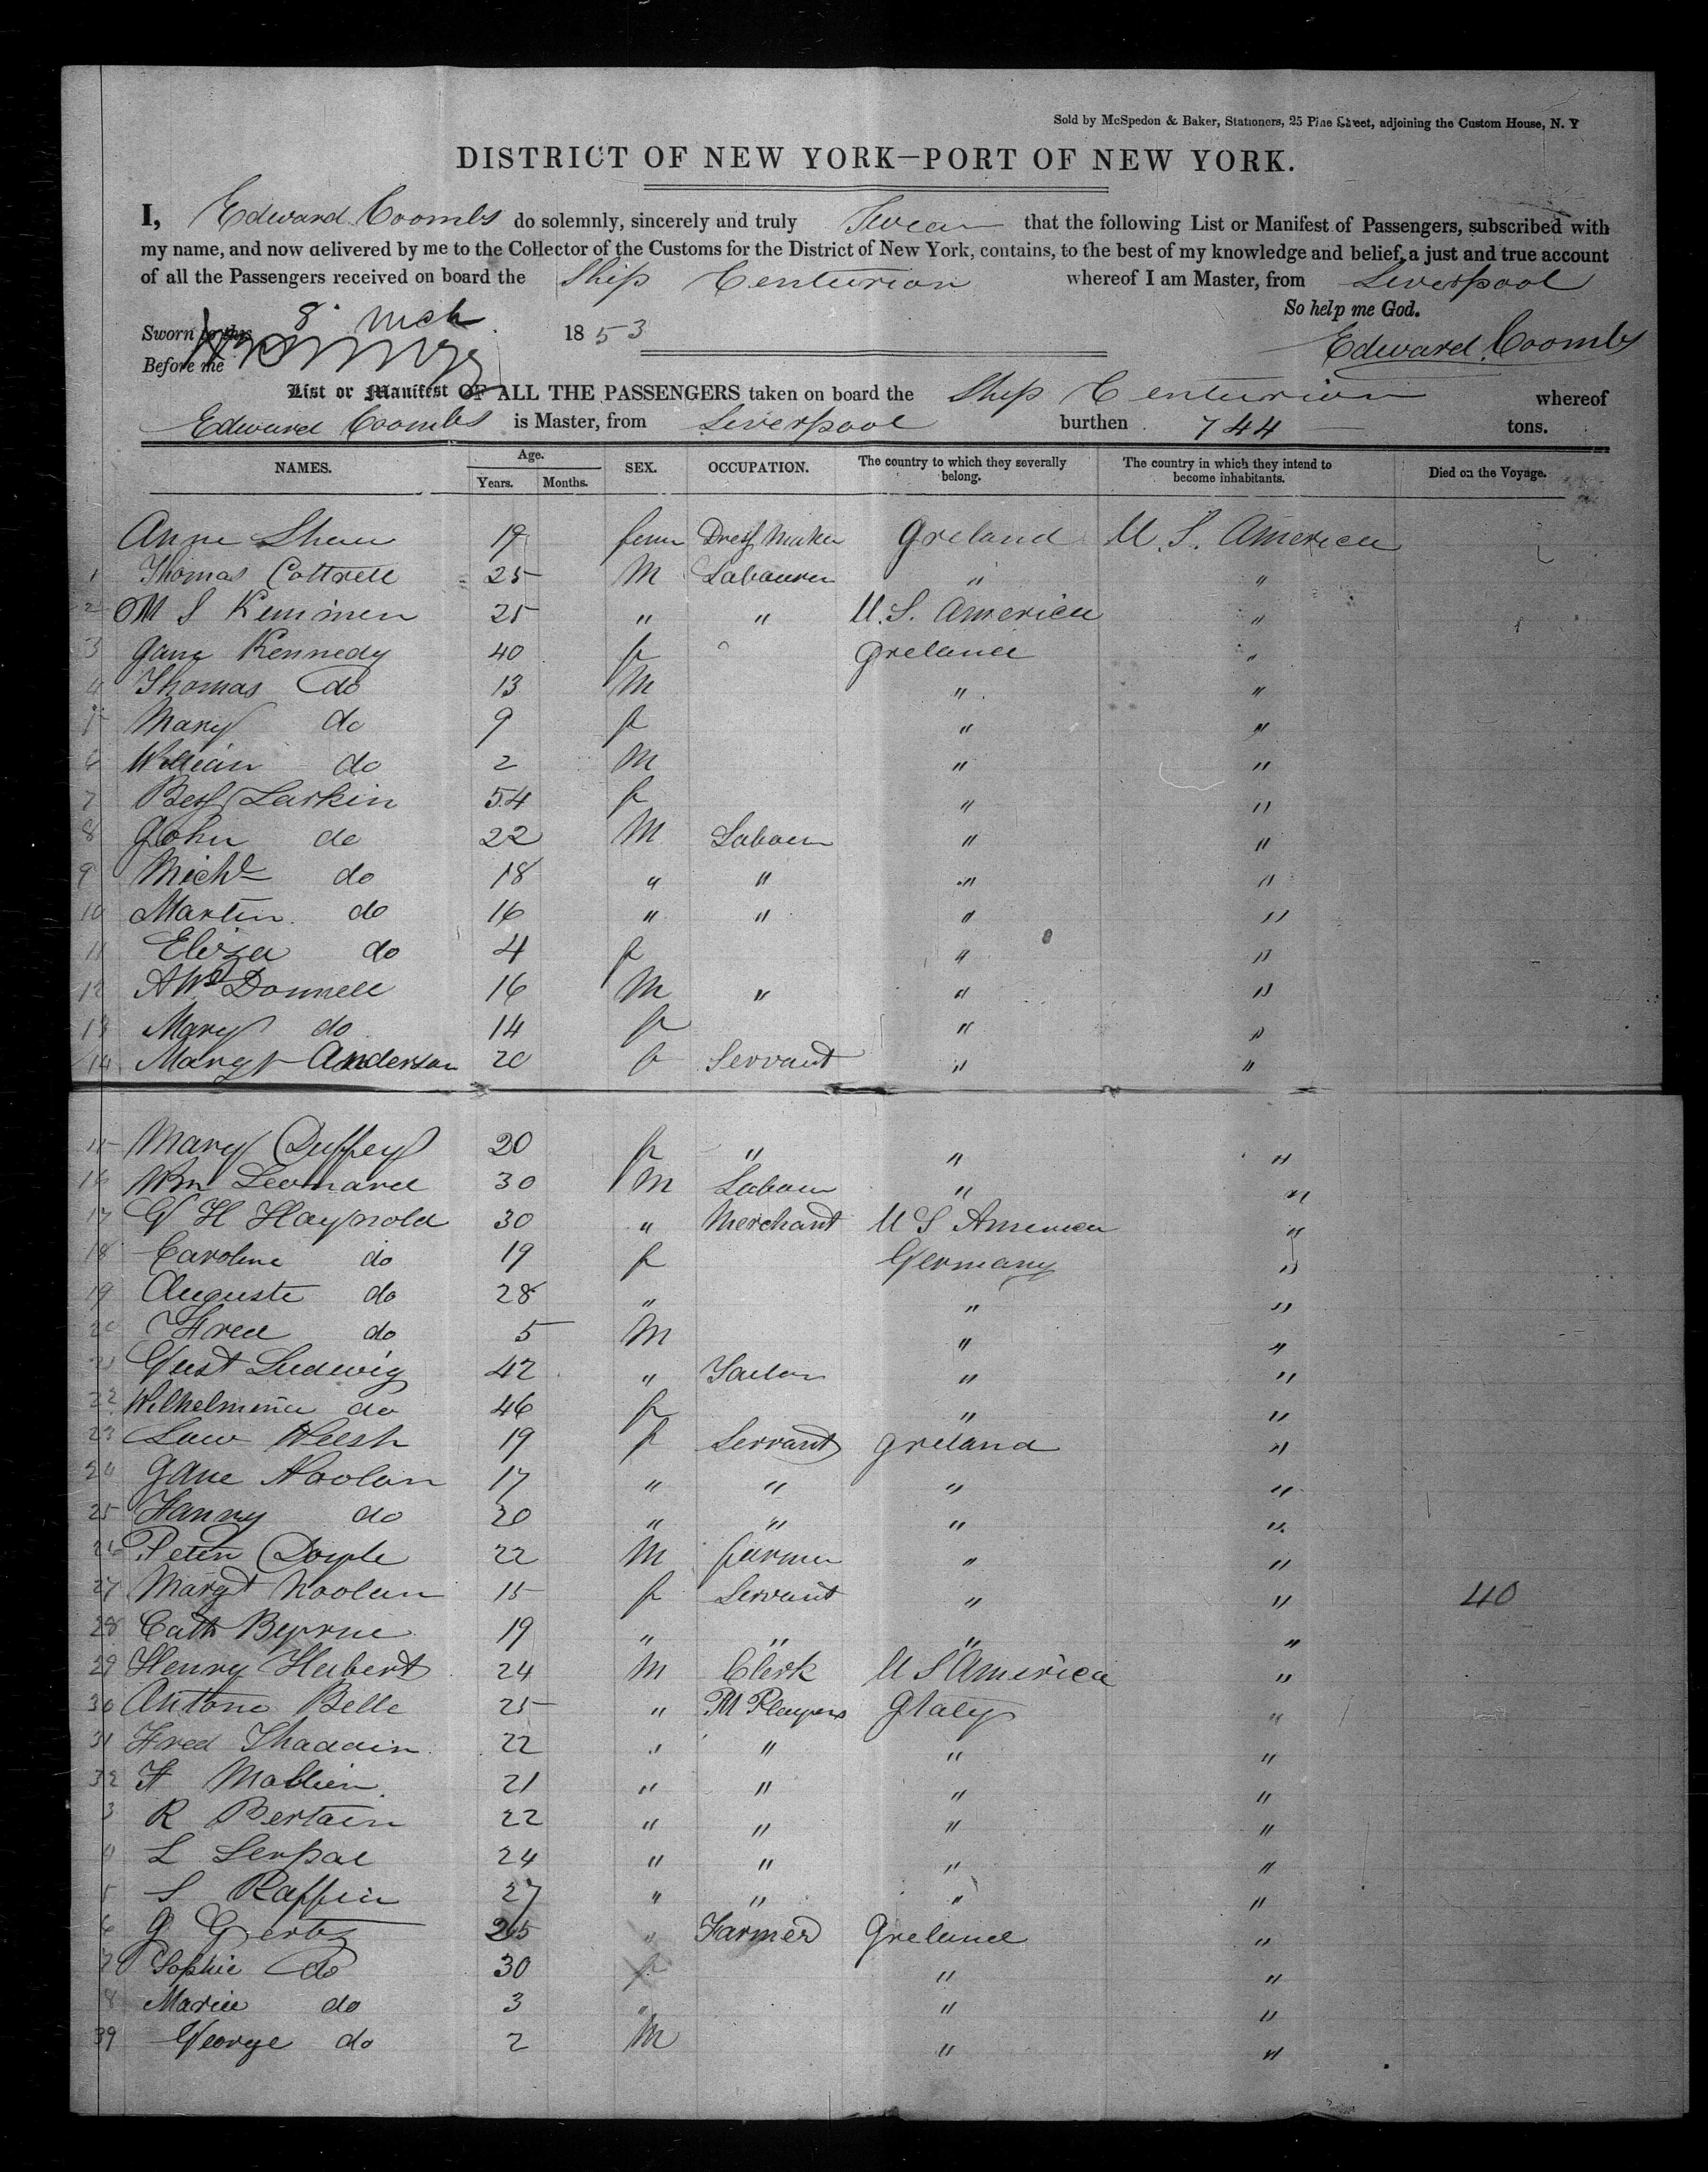 Sold by McSpedon & Baker, Stationers, 25 Pine Street, adjoining the Custom House, N. Y
DISTRICT OF NEW YORK—PORT OF NEW YORK.
I, Edward Coombs do solemnly, sincerely and truly Swear that the following List or Manifest of Passengers, subscribed with
my name, and now delivered by me to the Collector of the Customs for the District of New York, contains, to the best of my knowledge and belief, a just and true account
of all the Passengers received on board the Ship Centurion whereof I am Master, from Liverpool
So help me God.
Sworn to this 8 Mch 1853
Edward Coombs
Before me
List or Manifest OF ALL THE PASSENGERS taken on board the Ship Centurion whereof
Edward Coombs is Master, from Liverpool burthen 744 tons.
NAMES. Age. Years. Months. SEX. OCCUPATION. The country to which they severally belong. The country in which they intend to become inhabitants. Died on the Voyage.
Anne Shaw 19 fem Dress Maker Ireland U. S. America
1 Thomas Cottrell 25 M Labourer " "
2 M S 25 " " U. S. America "
3 Jane Kennedy 40 f Ireland "
4 Thomas do 13 M " "
5 Mary do 9 f " "
6 William do 2 M " "
7 Bess Larkin 54 f " "
8 John do 22 M Labour " "
9 Michl do 18 " " " "
10 Martin do 16 " " " "
11 Eliza do 4 f " "
12 Donnell 16 M " " "
13 Mary do 14 f " "
14 Margt Anderson 20 f Servant " "
15 Mary Duffey 20 f " " "
16 Wm Leonard 30 M Labour " "
17 G H Haynold 30 " Merchant U S America "
18 Caroline do 19 f Germany "
19 Auguste do 28 " " "
20 Fred do 5 M " "
21 Gust Ludwig 42 " Tailor " "
22 Wilhelmina do 46 f " "
23 Welsh 19 f Servant Ireland "
24 Jane Noolan 17 " " " "
25 Fanny do 20 " " " "
26 Peter Doyle 22 M farmer " "
27 Margt Noolan 15 f Servant " " 40
28 Cath Byrne 19 " " " "
29 Henry Hubert 24 M Clerk U S America "
30 Antone Belle 25 " M Players Italy "
31 Fred Thadain 22 " " " "
32 F 21 " " " "
3 R Bertain 22 " " " "
4 L Serpae 24 " " " "
5 S Raffin 27 " " " "
6 G Gertz 25 " Farmer Ireland "
7 Sophie do 30 f " "
8 Marie do 3 " " "
39 George do 2 M " "